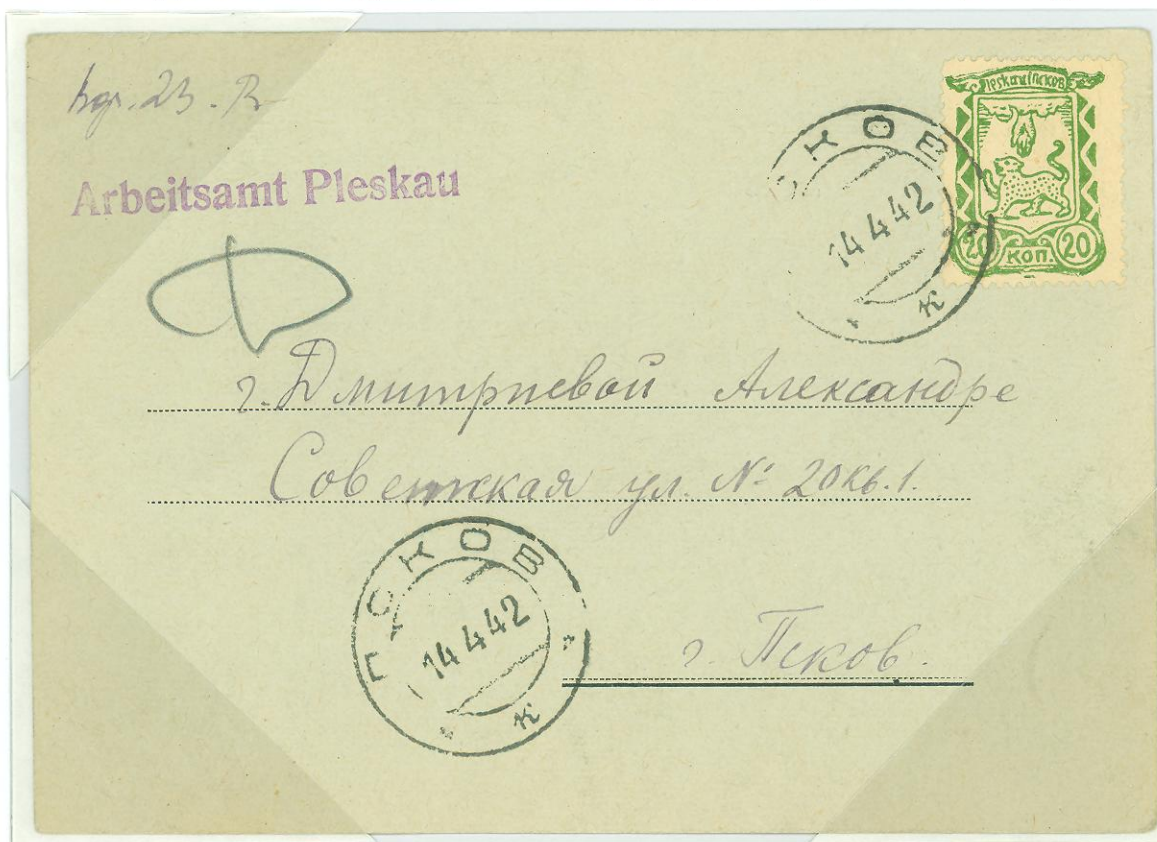 Arbeitsamt Pleskau
Pleskau Псков
20 коп. 20
ПСКОВ
14 4 42
к
г. Дмитриевой Александре
Советская ул. № 20 кв. 1.
ПСКОВ
14 4 42
к
г. Псков.